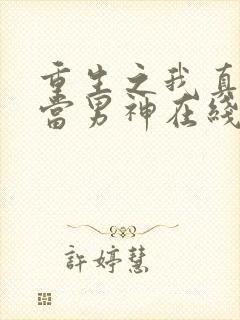 重生之我真
当男神在线
許婷慧